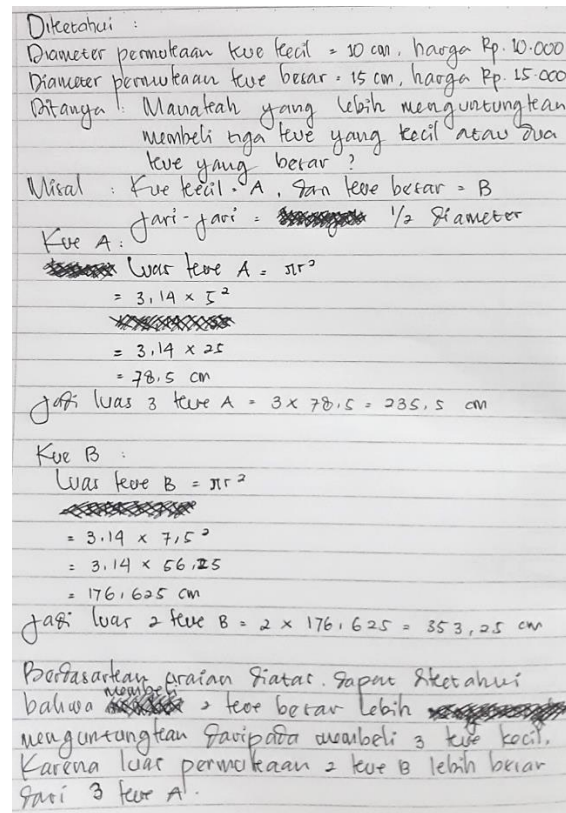 Diketahui :
Diameter permukaan kue kecil = 10 cm, harga Rp. 10.000
Diameter permukaan kue besar = 15 cm, harga Rp. 15.000
Ditanya : Manakah yang lebih menguntungkan
membeli tiga kue yang kecil atau dua
kue yang besar ?
Misal : Kue kecil = A, dan kue besar = B
Jari-jari = 1/2 diameter
Kue A :
Luas kue A = πr²
= 3,14 × 5²
= 3,14 × 25
= 78,5 cm
Jadi luas 3 kue A = 3 × 78,5 = 235,5 cm
Kue B :
Luas kue B = πr²
= 3.14 × 7,5²
= 3.14 × 56,25
= 176,625 cm
Jadi luas 2 kue B = 2 × 176,625 = 353,25 cm
Berdasarkan uraian diatas, dapat diketahui
bahwa membeli 2 kue besar lebih
menguntungkan daripada membeli 3 kue kecil.
Karena luas permukaan 2 kue B lebih besar
dari 3 kue A.